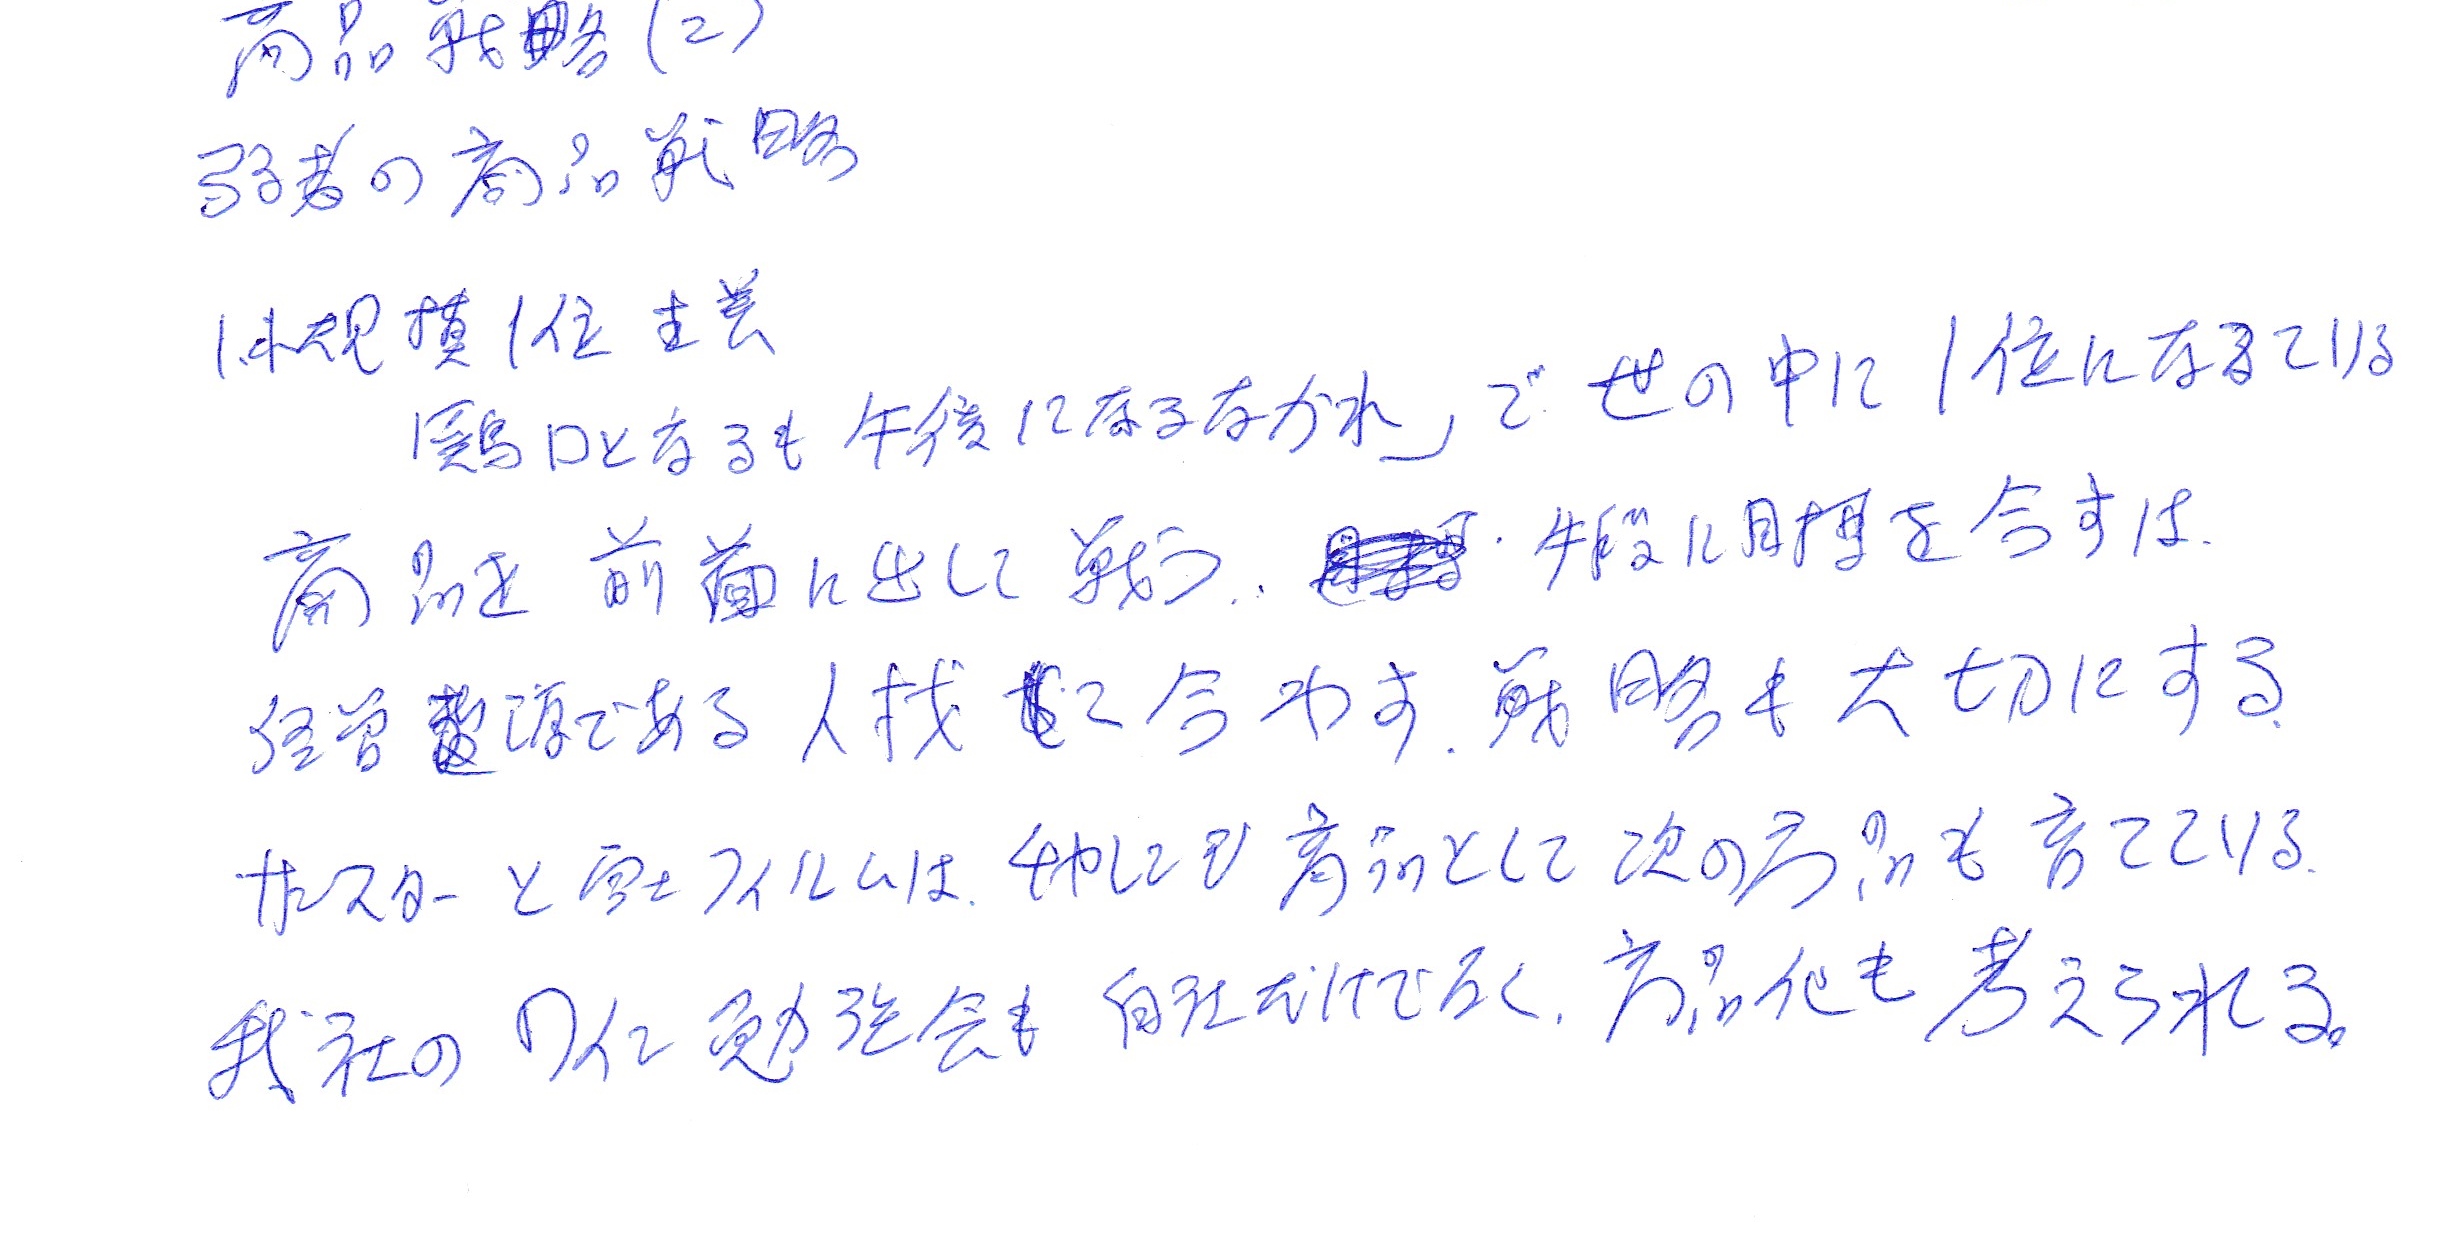 商品戦略(2)
弱者の商品戦略
1.小規模1位主義
「鶏口となるも午後になるなかれ」で世の中に1位になっている
商品を前面に出して戦う. に目標を今すは.
経営資源である人材 今やす.戦略も大切にする.
サンスターと富士フィルムは. 商品として次の商品も育てている.
我社の 勉強会も自社だけでなく.商品化も考えられる。